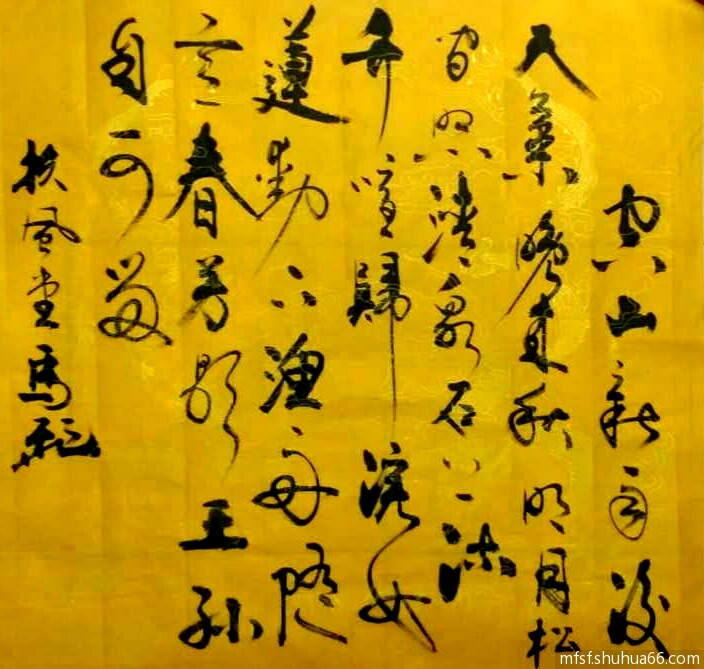 空山新雨後
天氣晚来秋明月松
间照清泉石上流
竹喧歸浣女
蓮動下渔舟随
意春芳歇王孙
自可留
扶风堂馬
mfsfshuhua66.com